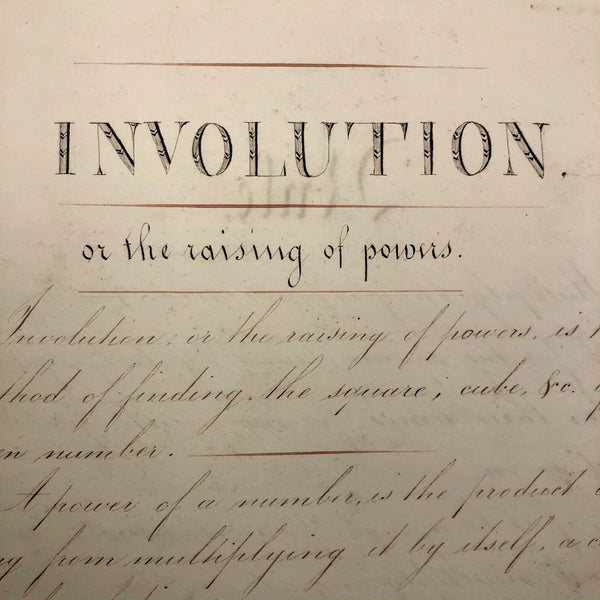 INVOLUTION.
or the raising of powers.
Involution, or the raising of powers, is
thod of finding the square, cube, &c.
en number.
A power of a number, is the product
from multiplying it by itself, a